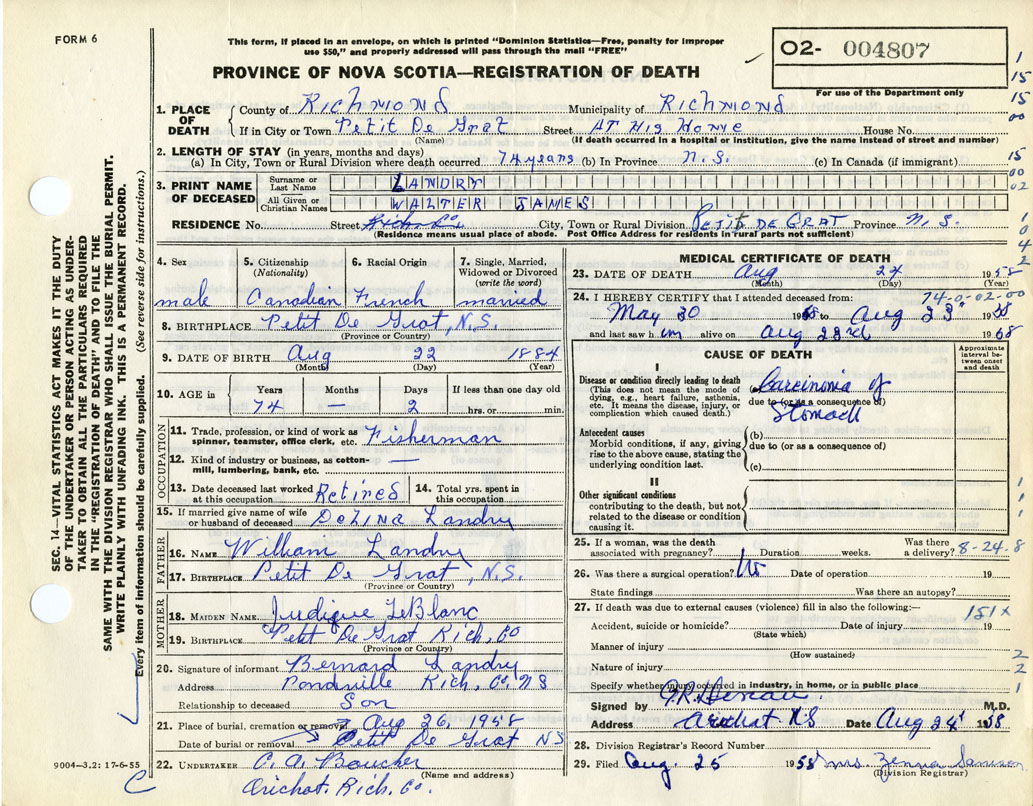 FORM 6
This form, if placed in an envelope, on which is printed "Dominion Statistics—Free, penalty for improper
use $50," and properly addressed will pass through the mail "FREE"
PROVINCE OF NOVA SCOTIA—REGISTRATION OF DEATH
O2- 004807
For use of the Department only
SEC. 14—VITAL STATISTICS ACT MAKES IT THE DUTY
OF THE UNDERTAKER OR PERSON ACTING AS UNDER-
TAKER TO OBTAIN ALL THE PARTICULARS REQUIRED
IN THE "REGISTRATION OF DEATH" AND TO FILE THE
SAME WITH THE DIVISION REGISTRAR WHO SHALL ISSUE THE BURIAL PERMIT.
WRITE PLAINLY WITH UNFADING INK. THIS IS A PERMANENT RECORD.
Every item of information should be carefully supplied. (See reverse side for instructions.)
1. PLACE OF DEATH
County of Richmond Municipality of Richmond
If in City or Town Petit De Grat Street At His Home House No.
(Name) (If death occurred in a hospital or institution, give the name instead of street and number)
2. LENGTH OF STAY (in years, months and days)
(a) In City, Town or Rural Division where death occurred 74 years (b) In Province N.S. (c) In Canada (if immigrant)
3. PRINT NAME OF DECEASED
Surname or Last Name LANDRY
All Given or Christian Names WALTER JAMES
RESIDENCE No. Street Rich. Co. City, Town or Rural Division Petit De Grat Province N.S.
(Residence means usual place of abode. Post Office Address for residents in rural parts not sufficient)
4. Sex
male
5. Citizenship
(Nationality)
Canadian
6. Racial Origin
French
7. Single, Married,
Widowed or Divorced
(write the word)
married
8. BIRTHPLACE Petit De Grat, N.S.
(Province or Country)
9. DATE OF BIRTH Aug 22 1884
(Month) (Day) (Year)
10. AGE in
Years Months Days If less than one day old
74 — 2 hrs. or min.
OCCUPATION
11. Trade, profession, or kind of work as
spinner, teamster, office clerk, etc. Fisherman
12. Kind of industry or business, as cotton-
mill, lumbering, bank, etc. —
13. Date deceased last worked
at this occupation Retired
14. Total yrs. spent in
this occupation
15. If married give name of wife
or husband of deceased Dozina Landry
FATHER
16. NAME William Landry
17. BIRTHPLACE Petit De Grat, N.S.
(Province or Country)
MOTHER
18. MAIDEN NAME Judique LeBlanc
19. BIRTHPLACE Petit De Grat Rich. Co
(Province or Country)
20. Signature of informant Bernard Landry
Address Pondville Rich. Co. N S
Relationship to deceased Son
21. Place of burial, cremation or removal Aug 26, 1958
Date of burial or removal Petit De Grat N S
22. UNDERTAKER C. A. Boucher
(Name and address)
Arichat. Rich. Co.
9004—3.2: 17-6-55
MEDICAL CERTIFICATE OF DEATH
23. DATE OF DEATH Aug 24 1958
(Month) (Day) (Year)
74-0-02-00
24. I HEREBY CERTIFY that I attended deceased from:
May 30 to Aug 23rd 1958
and last saw him alive on Aug 23rd 1958
CAUSE OF DEATH
Approximate
interval be-
tween onset
and death
I
Disease or condition directly leading to death
(This does not mean the mode of
dying, e.g., heart failure, asthenia,
etc. It means the disease, injury, or
complication which caused death.)
(a) Carcinoma of
due to (or as a consequence of)
Stomach
Antecedent causes
Morbid conditions, if any, giving
rise to the above cause, stating the
underlying condition last.
(b)
due to (or as a consequence of)
(c)
II
Other significant conditions
contributing to the death, but not
related to the disease or condition
causing it.
25. If a woman, was the death
associated with pregnancy? Duration weeks. Was there
a delivery? 8-24-8
26. Was there a surgical operation? No Date of operation 19
State findings Was there an autopsy?
27. If death was due to external causes (violence) fill in also the following:—
151x
Accident, suicide or homicide? Date of injury 19
(State which)
Manner of injury
(How sustained)
Nature of injury
Specify whether injury occurred in industry, in home, or in public place
Signed by M.D.
Address Arichat N S Date Aug 24 1958
28. Division Registrar's Record Number
29. Filed Aug. 25 1958 Mrs. Samson
(Division Registrar)
1
15
15
00
15
00
02
1
0
4
2
1
1
1
2
2
1